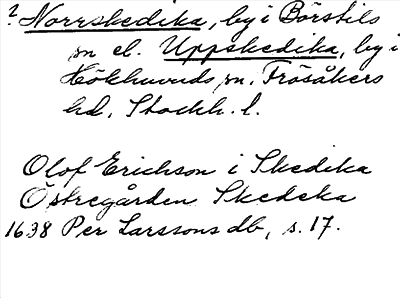 ? Norrskedika, by i Börstils
sn el. Uppskedika, by i
Hökhuvuds sn. Frösåkers
hd, Stockh. l.
Olof Erichson i Skedika
Östregården Skedeka
1638 Per Larssons db, s. 17.